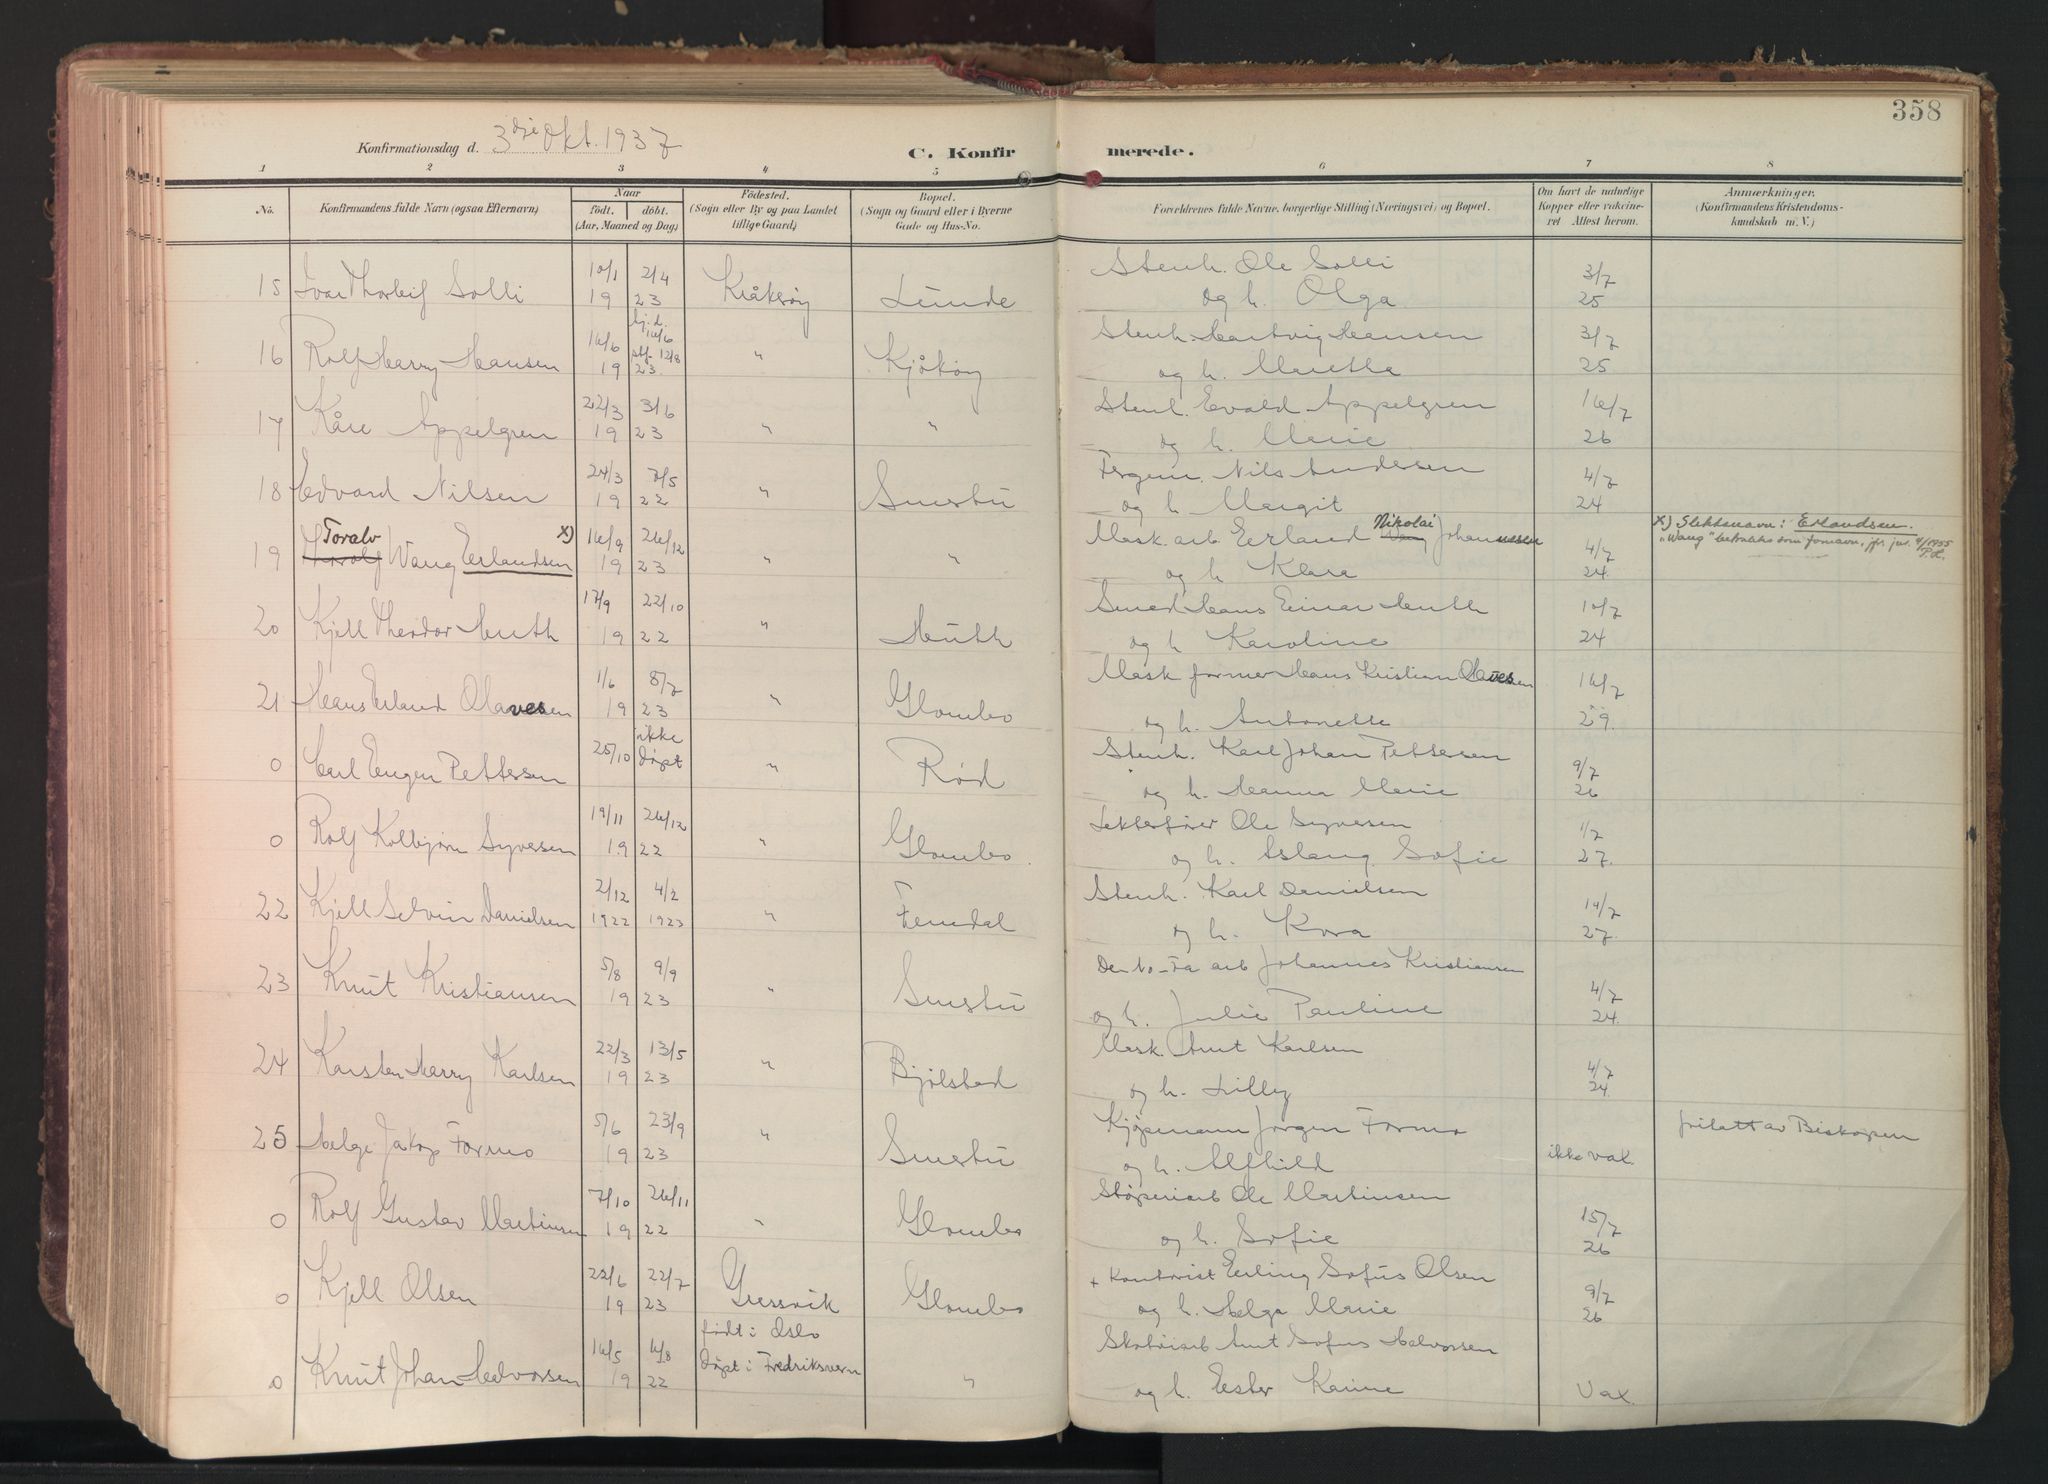 358
Konfirmationsdag d. 3dje Okt. 1937
C. Konfirmerede.
1 2 3 4 5 6 7 8
No.
Konfirmandens fulde Navn (ogsaa Efternavn)
Naar
födt. döbt.
(Aar, Maaned og Dag)
Födested.
(Sogn eller By og paa Landet
tillige Gaard)
Bopæl.
(Sogn og Gaard eller i Byerne
Gade og Hus-No.
Forældrenes fulde Navne, borgerlige Stilling (Næringsvei) og Bopæl.
Om havt de naturlige
Kopper eller vakcine-
ret Attest herom.
Anmærkninger.
(Konfirmandens Kristendoms-
kundskab m. V.)
15 Ivar Thorleif Solli 10/1 19 2/4 23 Kråkerøy Lunde Stenh. Ole Solli
og h. Olga 3/7 25
16 Rolf Harry Hansen 16/6 19 hj. d. 16/6 stf. 12/8 23 " Kjøkøy Stenh. Hartvig Hansen
og h. Martha 3/7 25
17 Kåre Appelgren 22/3 19 3/6 23 " " Stenh. Evald Appelgren
og h. Marie 16/7 26
18 Edvard Nilsen 24/3 19 7/5 22 " Smertu Fergem. Nils Andersen
og h. Margit 4/7 24
19 Toralv Wang Erlandsen x) 16/9 19 26/12 23 " " Mask. arb Erland Nikolai Johannessen
og h Klara 4/7 24
x) Slektsnavn: Erlandsen.
"Wang" betraktes som fornavn, jfr. jnr. 4/1955
P.L.
20 Kjell Theodor Huth 17/9 19 22/10 22 " Huth Smed Hans Einar Huth
og h Karoline 10/7 24
21 Hans Erland Olavesen 1/6 19 8/7 23 " Glombo Mask former Hans Kristian Olavesen
og h. Antonette 16/7 29.
0 Carl Eugen Pettersen 25/10 ikke døpt " Rød Stenh. Karl Johan Pettersen
og h. Hanna Marie 9/7 26
0 Rolf Kolbjørn Syversen 19/11 19 26/12 22 " Glombo. Lekterfører Ole Syversen
og h. Aslaug Sofie 1/7 27.
22 Kjell Selvin Danielsen 2/12 1922 4/2 1923 " Femdal Stenh. Karl Danielsen
og h. Kora 19/7 27.
23 Knut Kristiansen 5/8 19 9/9 23 " Smertu De-No-Fa arb Johannes Kristiansen
og h. Julie Pauline 4/7 24.
24 Karsten Harry Karlsen 22/3 19 13/5 23 " Bjølstad Mask. Arnt Karlsen
og h. Lilly 4/7 24
25 Helge Jakop Formo 5/6 19 23/9 23 " Smertu Kjøpmann Jørgen Formo
og h. Alfhild ikke vax. fritatt av Biskopen
0 Rolf Gustav Martinsen 7/10 19 26/11 22 " Glombo Støperiarb Ole Martinsen
og h. Sofie 15/7 26
0 Kjell Olsen 22/6 19 22/7 23 Gressvik Glombo + Kontorist Erling Sofus Olsen
og h. Helga Marie 9/7 26
0 Knut Johan Halvorsen 16/5 19 6/8 22 født i Oslo
døpt i Fredriksvern " Skotøiarb Arnt Sofus Halvorsen
og h. Ester Karine Vax.